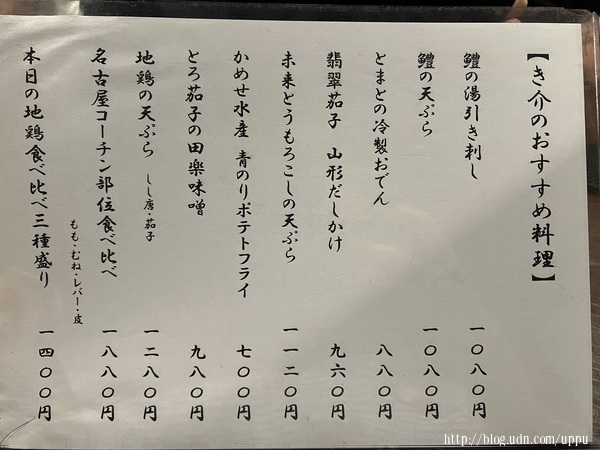 【き介のおすすめ料理】
鱧の湯引き刺し 一〇八〇円
鱧の天ぷら 一〇八〇円
とまとの冷製おでん 八八〇円
翡翠茄子 山形だしかけ 九六〇円
未来とうもろこしの天ぷら 一一二〇円
かめせ水産 青のりポテトフライ 七〇〇円
とろ茄子の田楽味噌 九八〇円
地鶏の天ぷら しし唐・茄子 一二八〇円
名古屋コーチン部位食べ比べ 一八八〇円
もも・むね・レバー・皮
本日の地鶏食べ比べ三種盛り 一四〇〇円
http://blog.udn.com/uppu